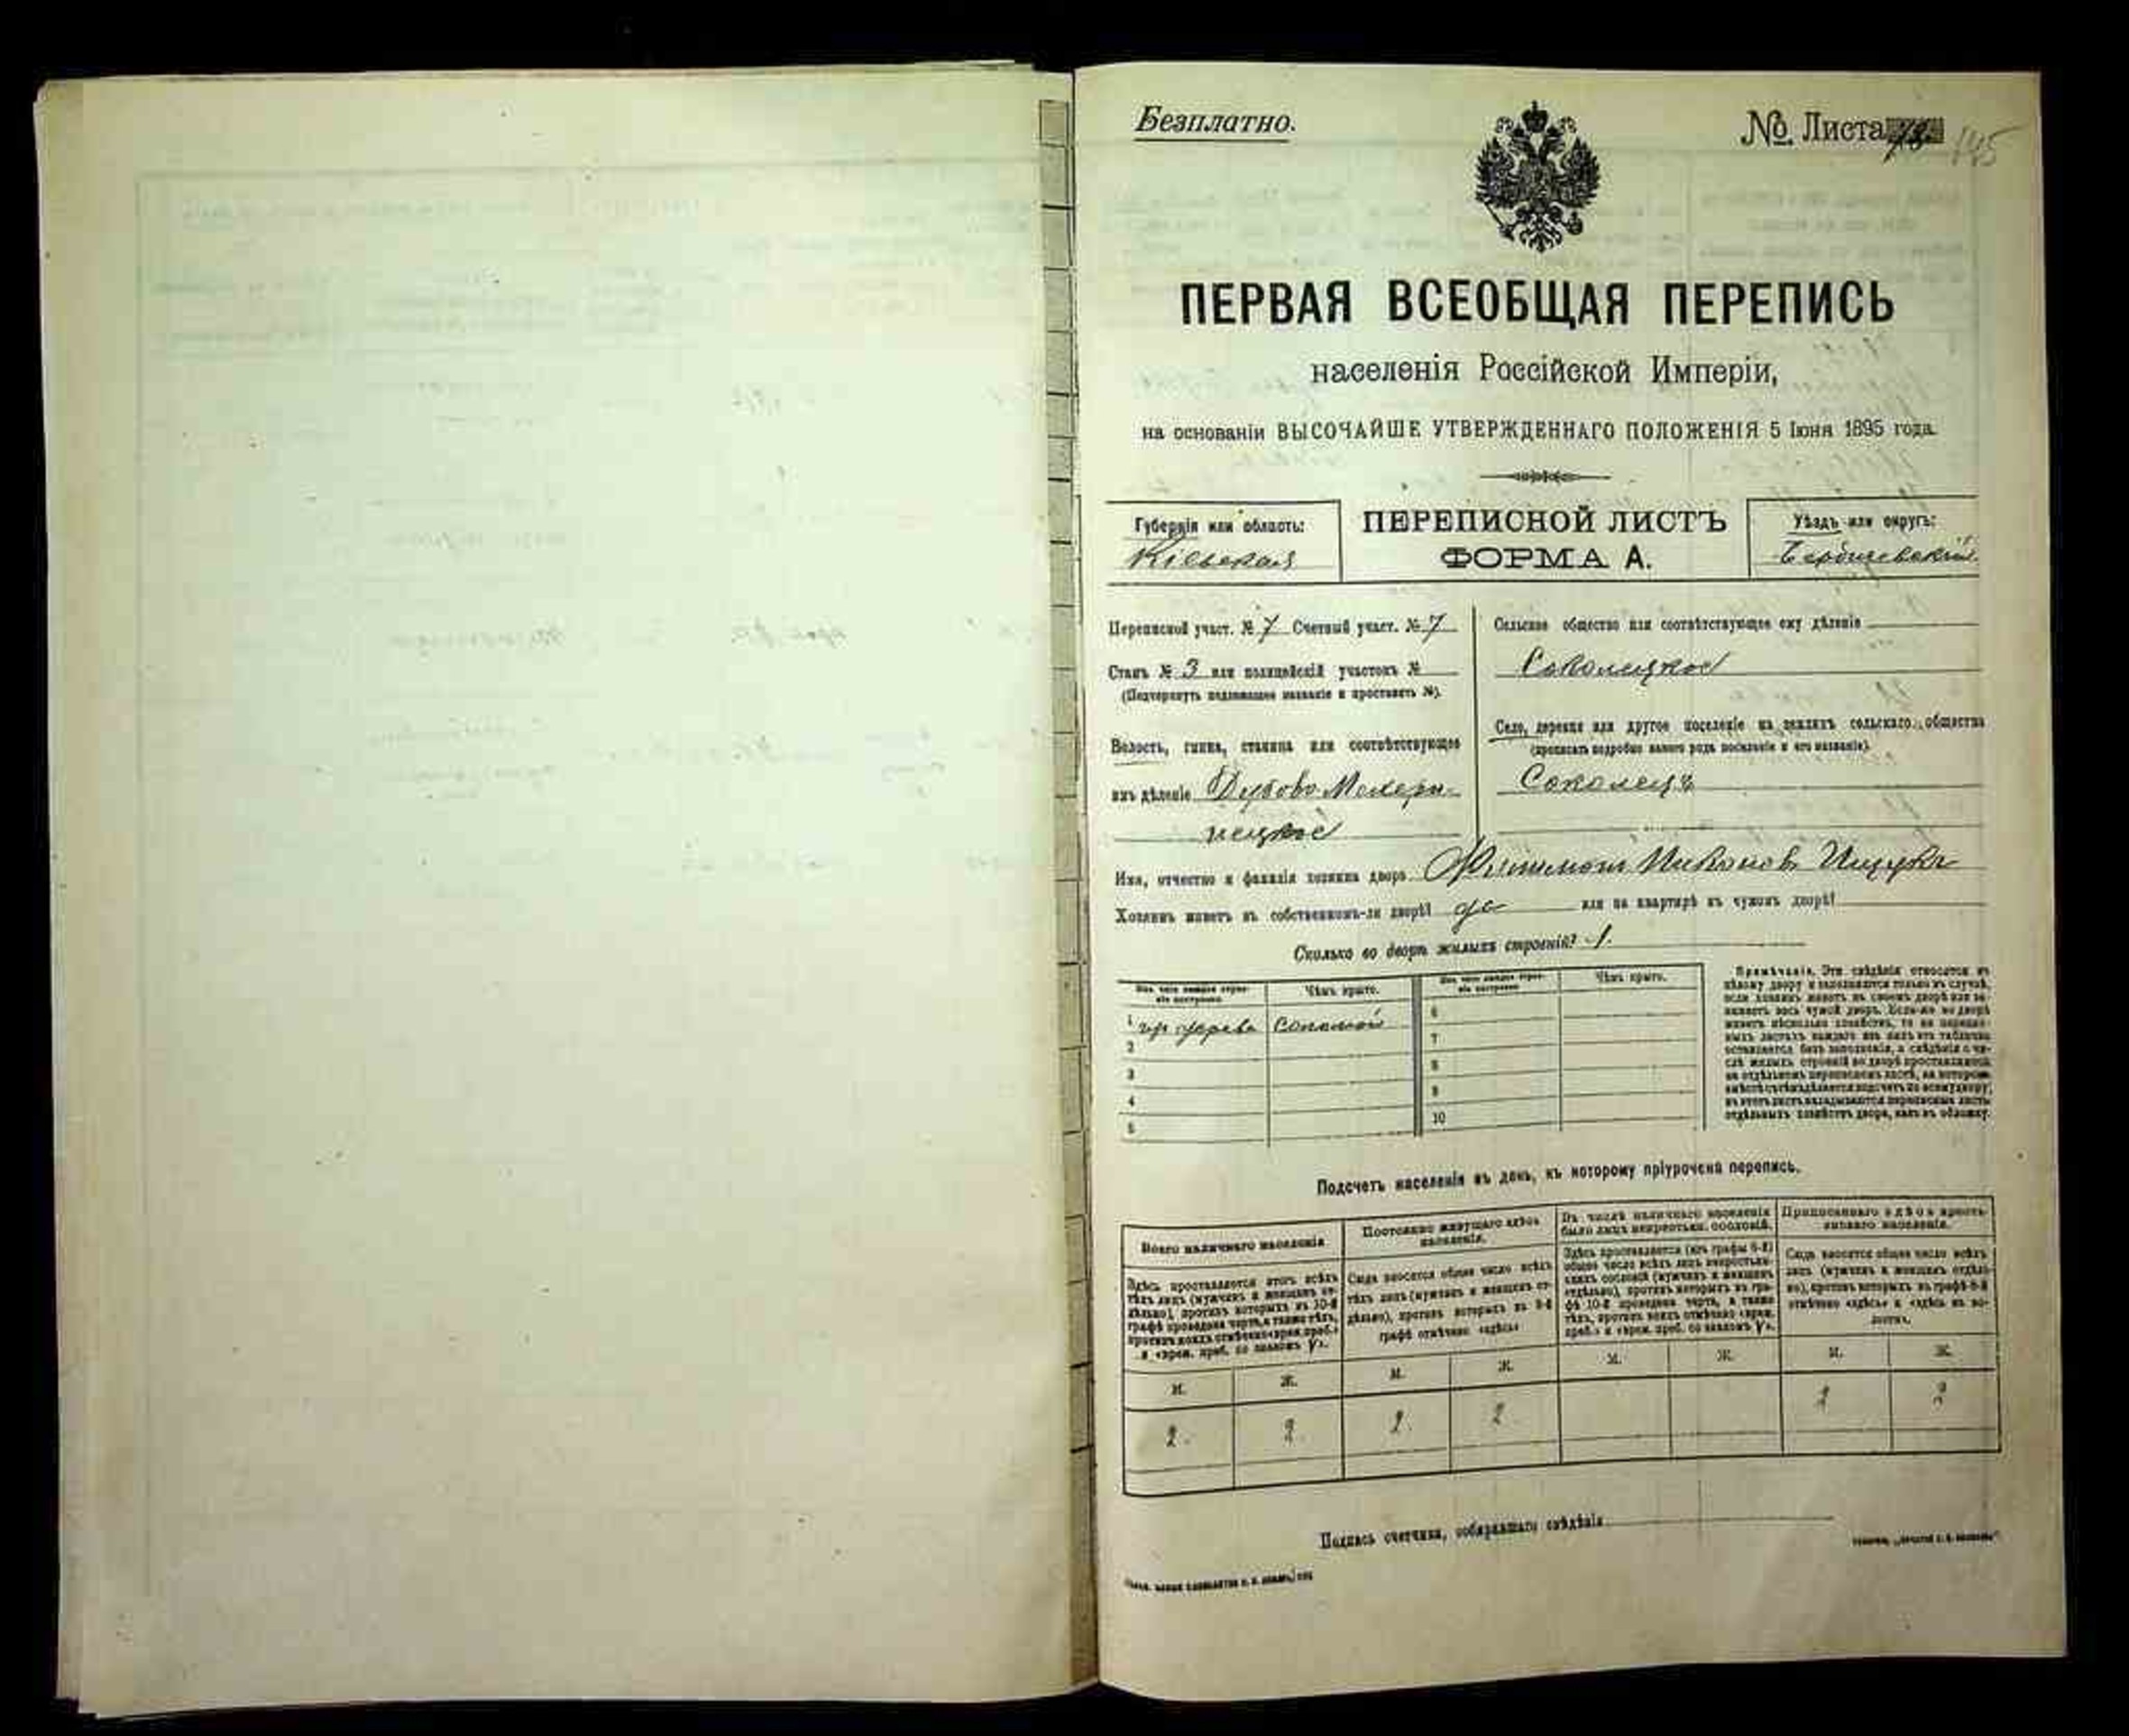 Безплатно.
№ Листа 73. 145
ПЕРВАЯ ВСЕОБЩАЯ ПЕРЕПИСЬ
населенія Россійской Имперіи,
на основаніи ВЫСОЧАЙШЕ УТВЕРЖДЕННАГО ПОЛОЖЕНІЯ 5 Іюня 1895 года.
Губернія или область:
Кіевская
ПЕРЕПИСНОЙ ЛИСТЪ
ФОРМА А.
Уѣздъ или округъ:
Бердичевскій
Переписной участ. № 7 Счетный участ. № 7
Станъ № 3 или полицейскій участокъ №
(Подчеркнуть надлежащее названіе и проставить №).
Волость, гмина, станица или соотвѣтствующее
имъ дѣленіе Дубово-Махари-
нецкое
Сельское общество или соотвѣтствующее ему дѣленіе
Соколецкое
Село, деревня или другое поселеніе на земляхъ сельскаго общества
(прописать подробно какого рода поселеніе и его названіе).
Соколецъ
Имя, отчество и фамилія хозяина двора Никоновъ Ищукъ
Хозяинъ живетъ въ собственномъ-ли дворѣ? да или на квартирѣ въ чужомъ дворѣ?
Сколько во дворѣ жилыхъ строеній? 1.
Изъ чего каждое строе-
ніе построено
Чѣмъ крыто.
Изъ чего каждое строе-
ніе построено
Чѣмъ крыто.
1 изъ дерева Соломой
2
3
4
5
6
7
8
9
10
Примѣчаніе. Эти свѣдѣнія относятся къ
цѣлому двору и заполняются только въ случаѣ,
если хозяинъ живетъ въ своемъ дворѣ или за-
нимаетъ весь чужой дворъ. Если-же во дворѣ
живетъ нѣсколько хозяйствъ, то на перепис-
ныхъ листахъ каждаго изъ нихъ эта табличка
оставляется безъ заполненія, а свѣдѣнія о чи-
слѣ жилыхъ строеній во дворѣ проставляются
на отдѣльномъ переписномъ листѣ, на которомъ
вмѣстѣ съ тѣмъ дѣлается подсчетъ по всему двору;
въ этотъ листъ вкладываются переписные листы
отдѣльныхъ хозяйствъ двора, какъ въ обложку.
Подсчетъ населенія въ день, къ которому пріурочена перепись.
Всего наличнаго населенія
Здѣсь проставляется итогъ всѣхъ
тѣхъ лицъ (мужчинъ и женщинъ от-
дѣльно), противъ которыхъ въ 10-й
графѣ проведена черта, а также тѣхъ,
противъ коихъ отмѣчено «врем. преб.»
и «врем. преб. со знакомъ V».
Постоянно живущаго здѣсь
населенія.
Сюда вносится общее число всѣхъ
тѣхъ лицъ (мужчинъ и женщинъ от-
дѣльно), противъ которыхъ въ 9-й
графѣ отмѣчено «здѣсь»
Въ числѣ наличнаго населенія
было лицъ некрестьян. сословій.
Здѣсь проставляется (изъ графы 6-й)
общее число всѣхъ лицъ некрестьян-
скихъ сословій (мужчинъ и женщинъ
отдѣльно), противъ которыхъ въ гра-
фѣ 10-й проведена черта, а также
тѣхъ, противъ коихъ отмѣчено «врем.
преб.» и «врем. преб. со знакомъ V».
Приписаннаго здѣсь кресть-
янскаго населенія.
Сюда вносится общее число всѣхъ
лицъ (мужчинъ и женщинъ отдѣль-
но), противъ которыхъ въ графѣ 8-й
отмѣчено «здѣсь» и «здѣсь въ во-
лости».
М. Ж. М. Ж. М. Ж. М. Ж.
2. 2. 2. 2 2 2
Подпись счетчика, собиравшаго свѣдѣнія